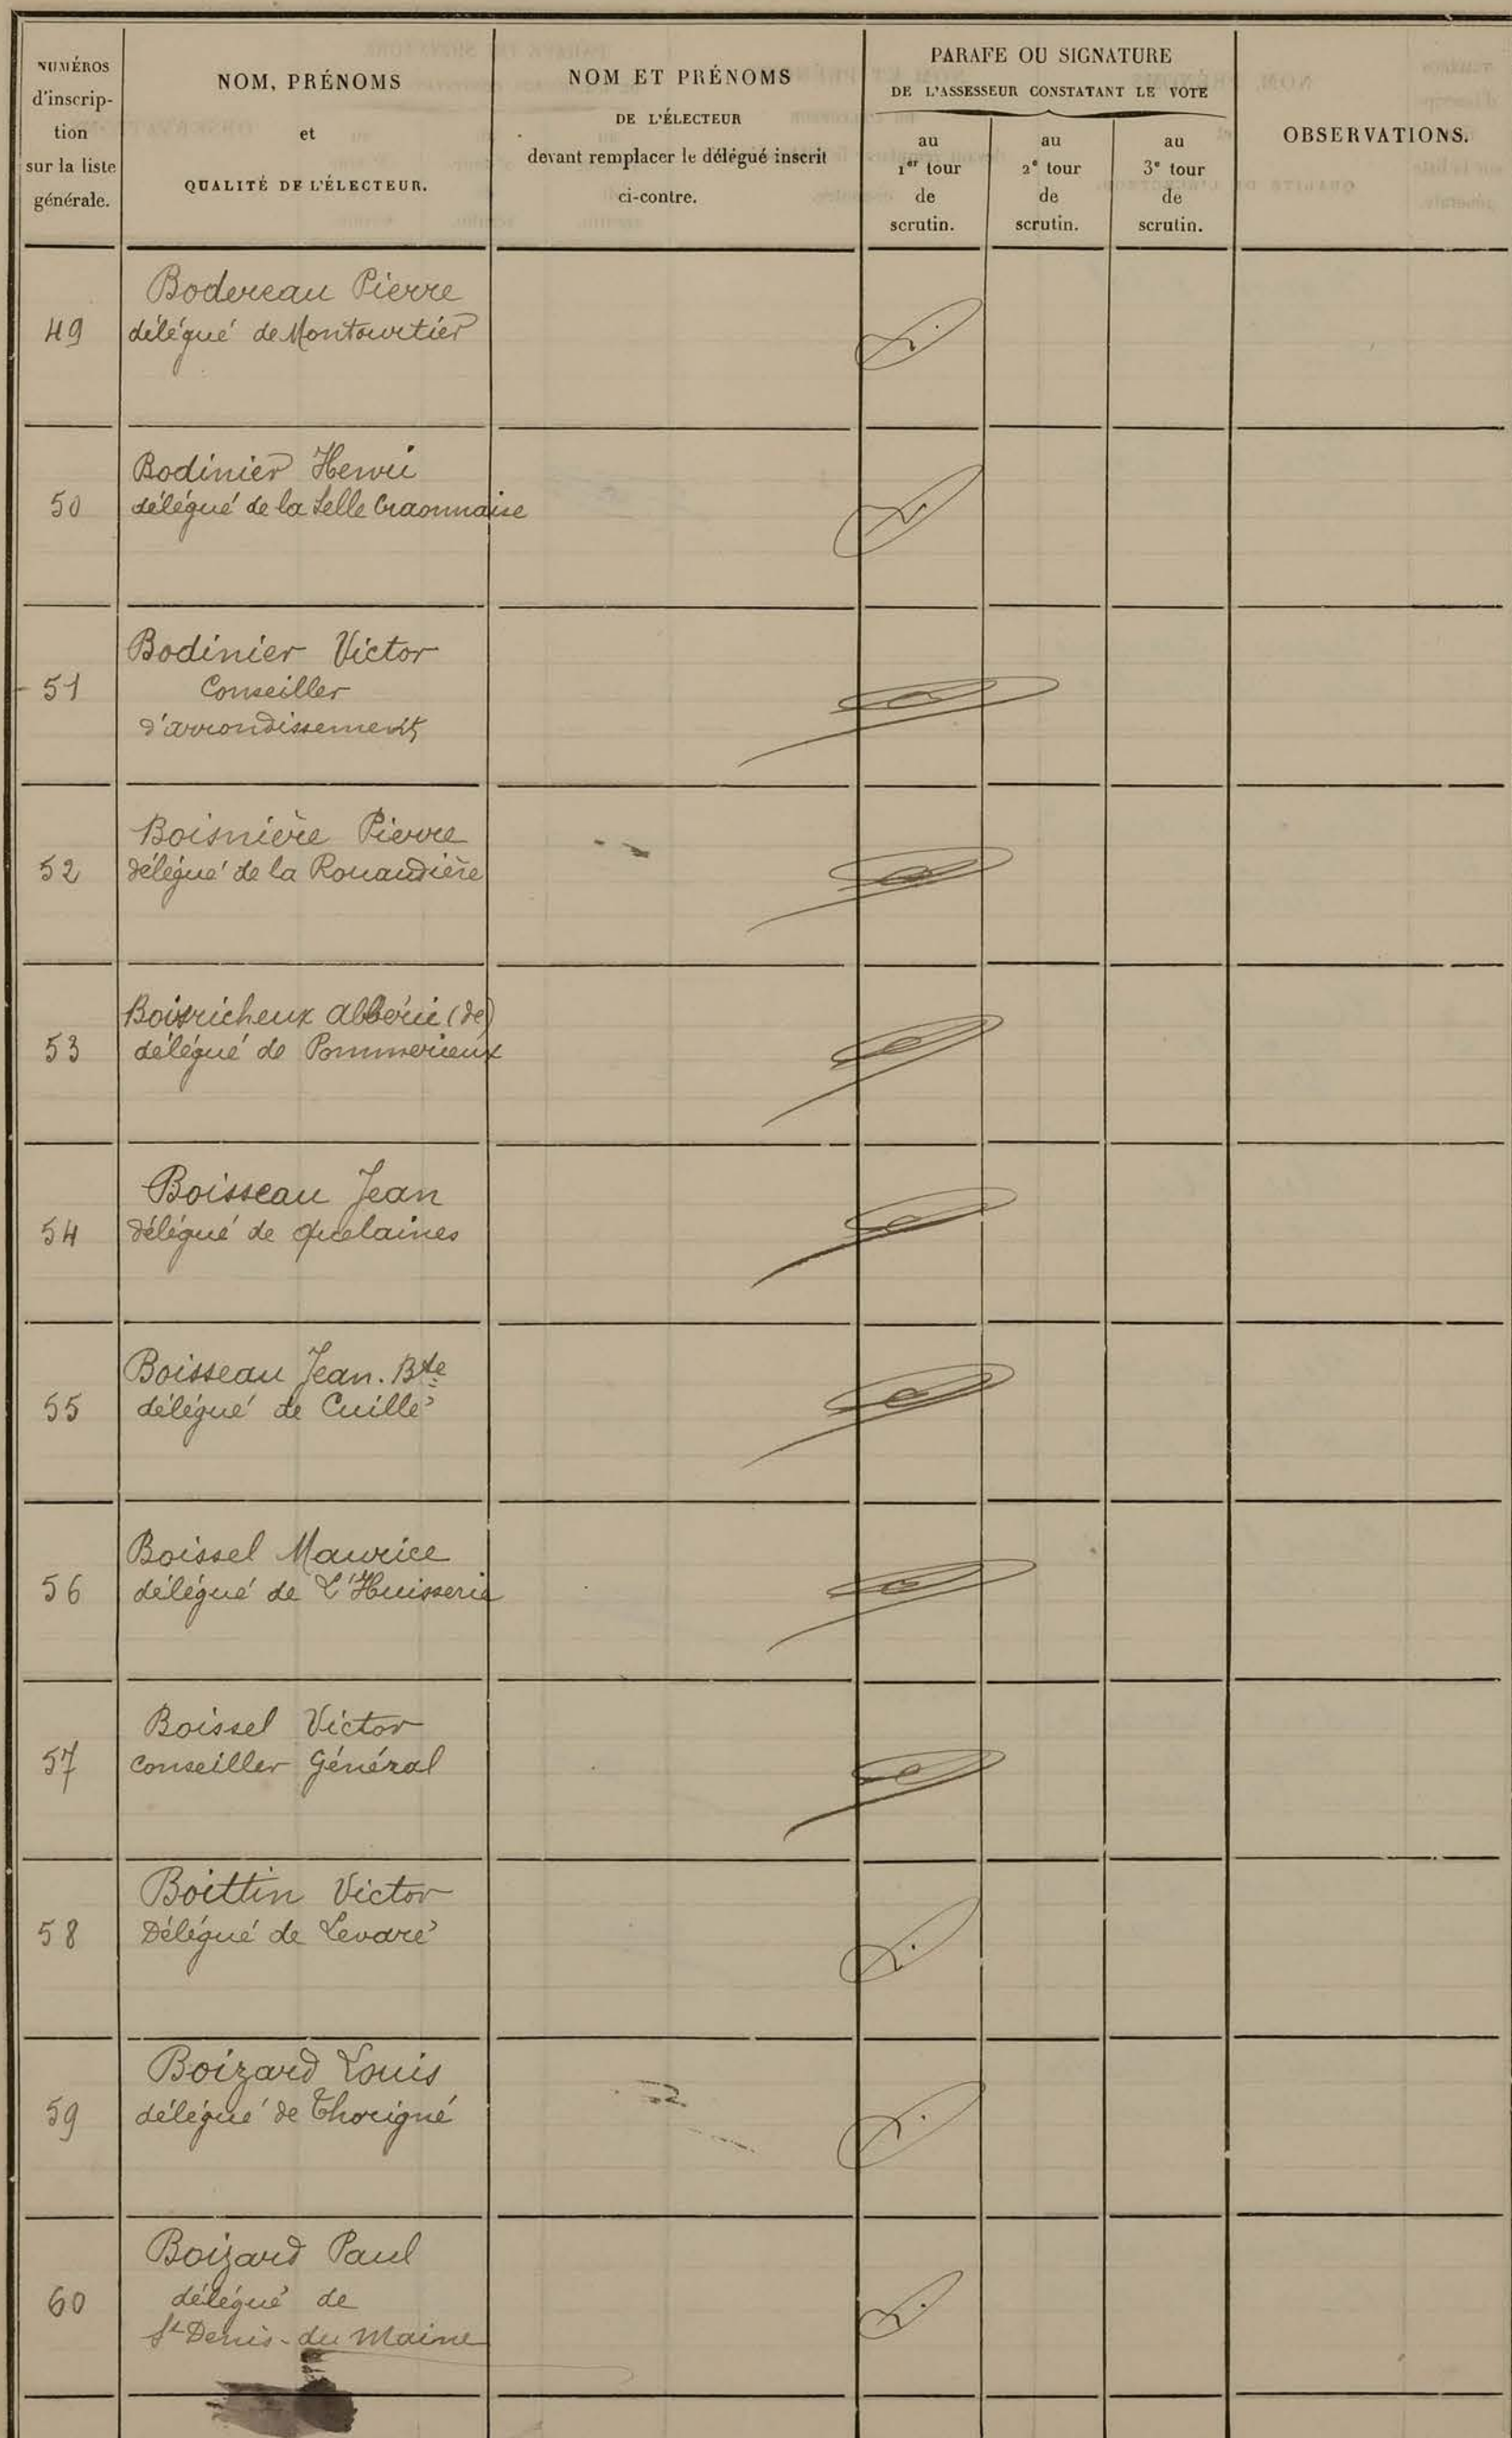 NUMÉROS
d'inscrip-
tion
sur la liste
générale.
NOM, PRÉNOMS
et
QUALITÉ DE L'ÉLECTEUR.
NOM ET PRÉNOMS
DE L'ÉLECTEUR
devant remplacer le délégué inscrit
ci-contre.
PARAFE OU SIGNATURE
DE L'ASSESSEUR CONSTATANT LE VOTE
au
1er tour
de
scrutin.
au
2e tour
de
scrutin.
au
3e tour
de
scrutin.
OBSERVATIONS.
Bodereau Pierre
49 délégué de Montourtier
Bodinier Henri
50 délégué de la Selle Craonnaise
Bodinier Victor
51 Conseiller
d'arrondissement
Boisnière Pierre
52 délégué de la Rouaudière
Boisricheux (de)
53 délégué de Pommerieux
Boisseau Jean
54 délégué de Quelaines
Boisseau Jean. Bte
55 délégué de Cuillé
Boissel Maurice
56 délégué de L'Huisserie
Boissel Victor
57 Conseiller Général
Boittin Victor
58 Délégué de Levaré
Boizard Louis
59 délégué de Thorigné
Boizard Paul
60 délégué de
St Denis-du Maine